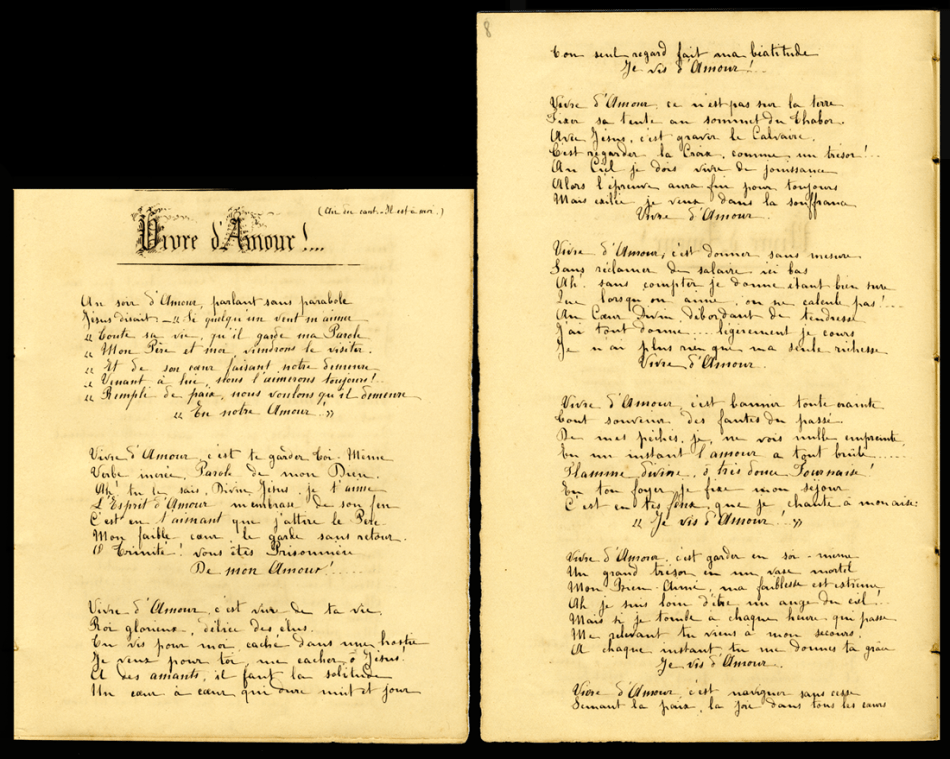 (Air du cant. - Il est à moi.)
Vivre d'Amour!....
Au soir d'Amour, parlant sans parabole
Jésus disait - « Si quelqu'un veut m'aimer
« Toute sa vie, qu'il garde ma Parole
« Mon Père et moi viendrons le visiter.
« Et de son cœur faisant notre demeure
« Venant à lui, nous l'aimerons toujours!...
« Rempli de paix, nous voulons qu'il demeure
« En notre Amour... »
Vivre d'Amour, c'est te garder Toi-Même
Verbe incréé, Parole de mon Dieu.
Ah! tu le sais, Divin Jésus, je t'aime
L'Esprit d'Amour m'embrase de son feu
C'est en t'aimant que j'attire le Père
Mon faible cœur le garde sans retour.
O Trinité! vous êtes Prisonnière
De mon Amour!......
Vivre d'Amour, c'est vivre de ta vie,
Roi glorieux, délice des élus.
Tu vis pour moi, caché dans une hostie
Je veux pour toi, me cacher, ô Jésus!
A des amants, il faut la solitude
Un cœur à cœur qui dure nuit et jour
8
Ton seul regard fait ma béatitude
Je vis d'Amour!...
Vivre d'Amour, ce n'est pas sur la terre
Fixer sa tente au sommet du Thabor.
Avec Jésus, c'est gravir le Calvaire,
C'est regarder la Croix, comme un trésor!...
Au Ciel je dois vivre de jouissance
Alors l'épreuve aura fui pour toujours
Mais exilée je veux dans la souffrance
Vivre d'Amour.
Vivre d'Amour, c'est donner sans mesure
Sans réclamer de salaire ici bas
Ah! sans compter je donne étant bien sûre
Que lorsqu'on aime, on ne calcule pas!...
Au Cœur Divin débordant de tendresse
J'ai tout donné.... légèrement je cours
Je n'ai plus rien que ma seule richesse
Vivre d'Amour.
Vivre d'Amour, c'est bannir toute crainte
Tout souvenir des fautes du passé.
De mes péchés, je ne vois nulle empreinte,
En un instant l'amour a tout brûlé......
Flamme divine, ô très douce Fournaise!
En ton foyer je fixe mon séjour
C'est en tes feux que je chante à mon aise:
« Je vis d'Amour!.. »
Vivre d'Amour, c'est garder en soi-même
Un grand trésor en un vase mortel
Mon Bien-Aimé, ma faiblesse est extrême
Ah je suis loin d'être un ange du ciel!...
Mais si je tombe à chaque heure qui passe
Me relevant tu viens à mon secours,
A chaque instant tu me donnes ta grâce
Je vis d'Amour.
Vivre d'Amour, c'est naviguer sans cesse
Semant la paix, la joie dans tous les cœurs